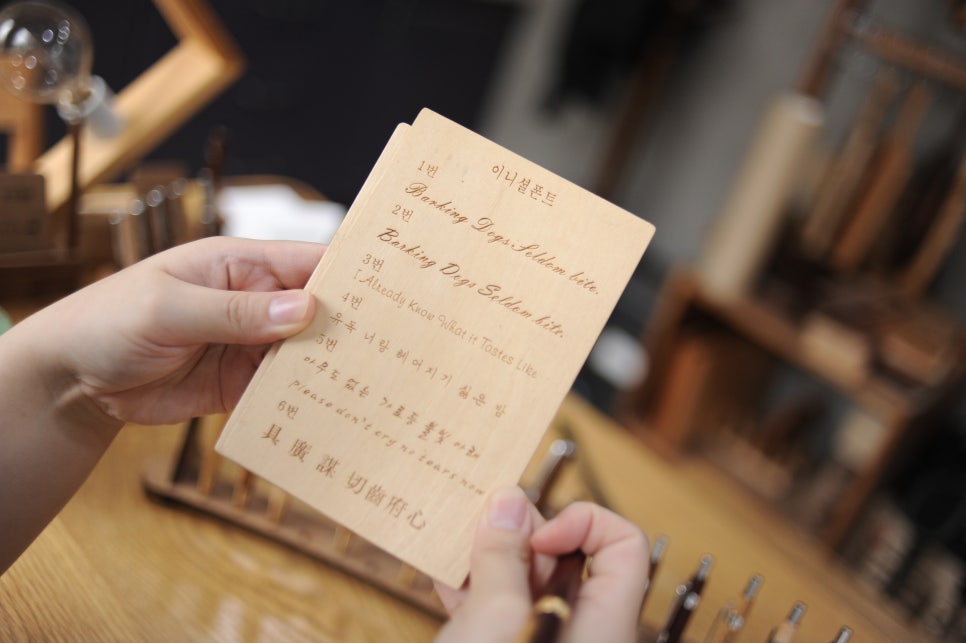 이니셜폰트
1번
Barking Dogs Seldom bite.
2번
Barking Dogs Seldom bite.
3번
I Already Know What it Tastes Like
4번
유독 너랑 헤어지기 싫은 밤
5번
아무도 없는 가로등 불빛 아래
please don't cry no tears now
6번
具廣謀切齒府心